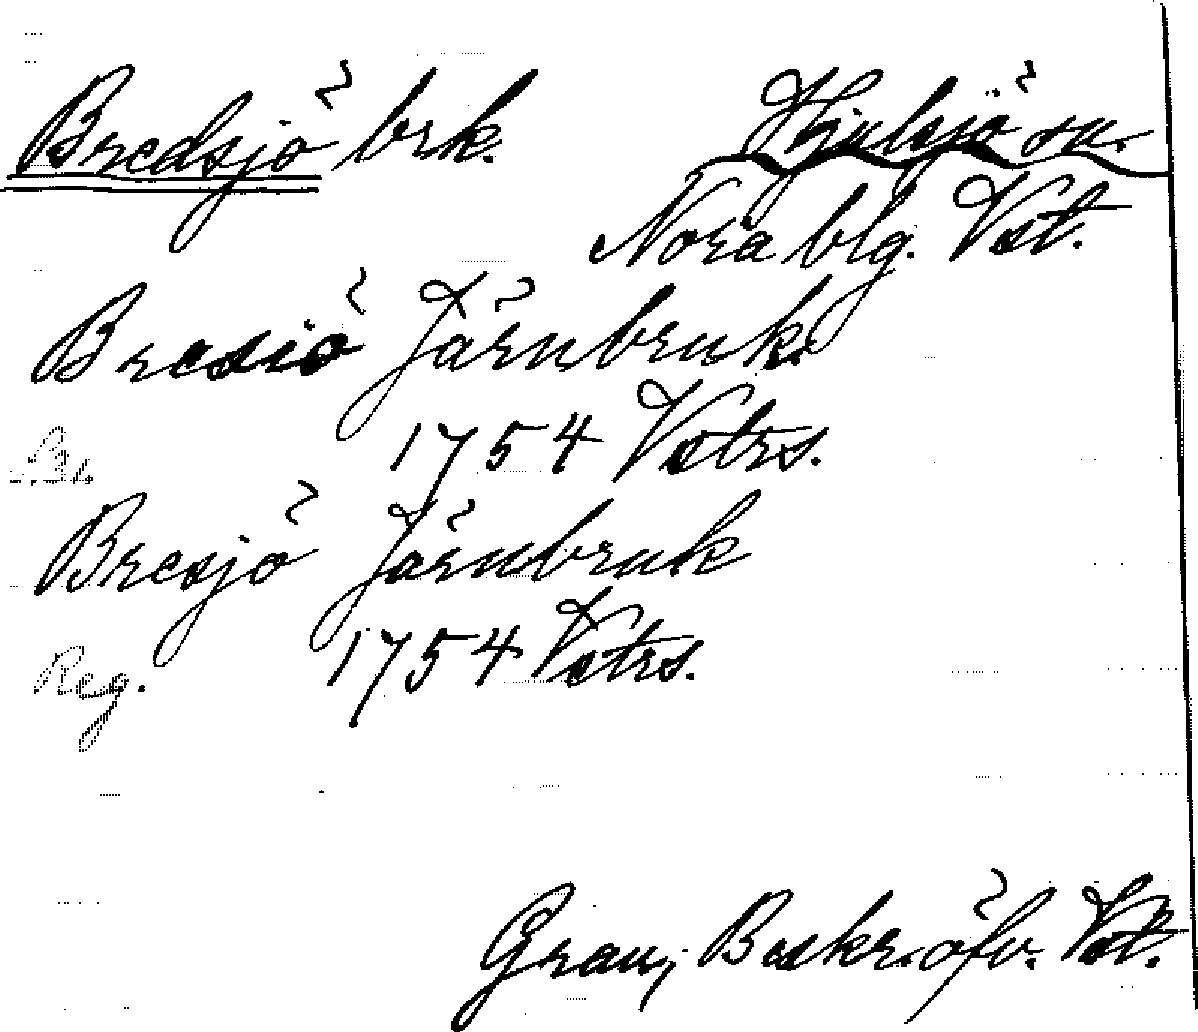 Bredsjö brk. Hjulsjö sn.
Nora blg. Vst.
Bresiö Järnbruk.
1754 Vstrs.
Bresjö Järnbruk
Reg. 1754 Vstrs.
Grau, Beskr. öfv. Vst.